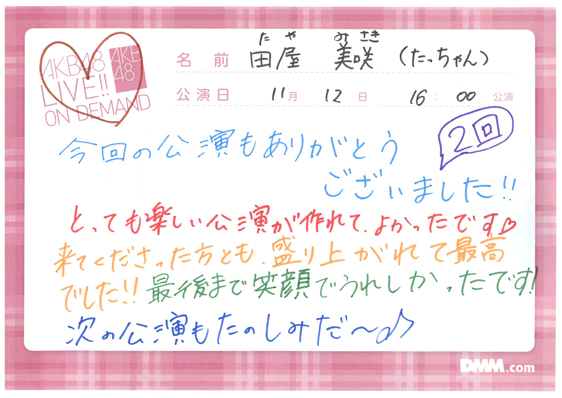 AKB48
LIVE!!
ON DEMAND
AKB
48
たや みさき
名前 田屋 美咲 (たっちゃん)
公演日 11月 12日 16:00公演
2回
今回の公演もありがとう
ございました!!
とっても楽しい公演が作れて、よかったです♡
来てくださった方とも、盛り上がれて最高
でした!! 最後まで笑顔でうれしかったです!
次の公演もたのしみだ〜♪
DMM.com